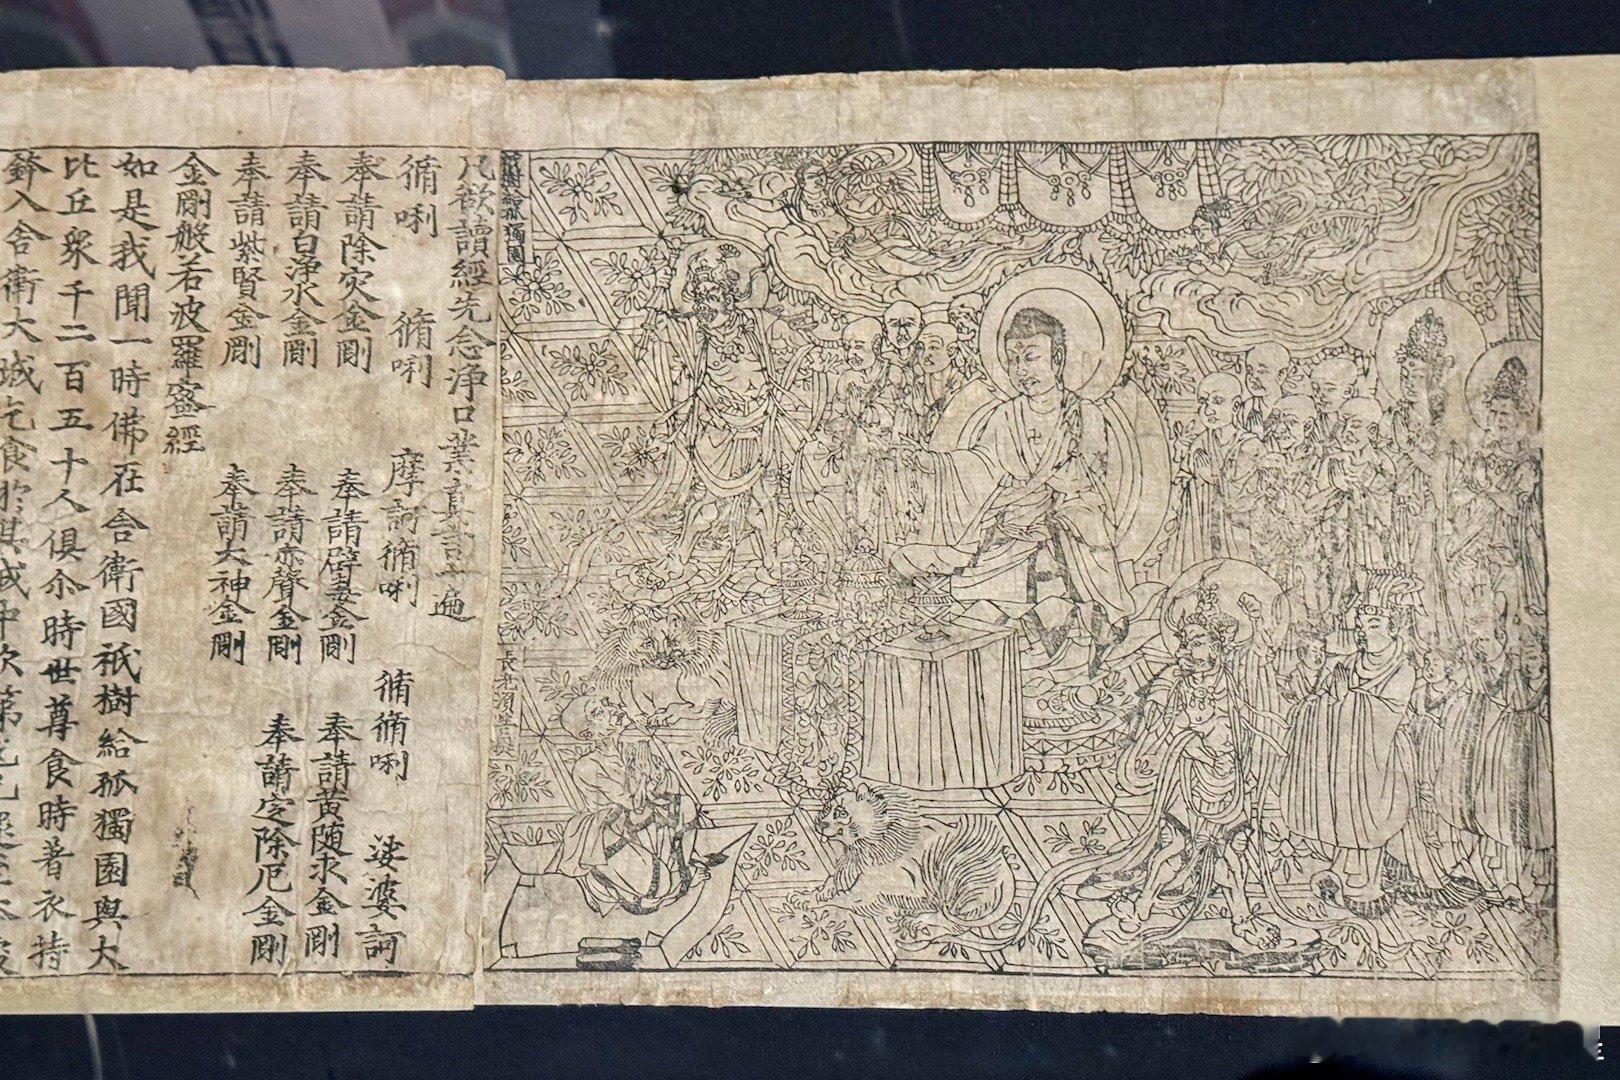 祇樹給孤獨園
長老須菩提
凡欲讀經先念淨口業真言一遍
脩唎 脩唎 摩訶脩唎 脩脩唎 娑婆訶
奉請除灾金剛 奉請辟毒金剛 奉請黃随求金剛
奉請白淨水金剛 奉請赤聲金剛 奉請定除厄金剛
奉請紫賢金剛 奉請大神金剛
金剛般若波羅蜜經
如是我聞一時佛在舍衛國祇樹給孤獨園與大
比丘衆千二百五十人俱尒時世尊食時著衣持
鉢入舍衛大城乞食於其城中次第乞已還至本